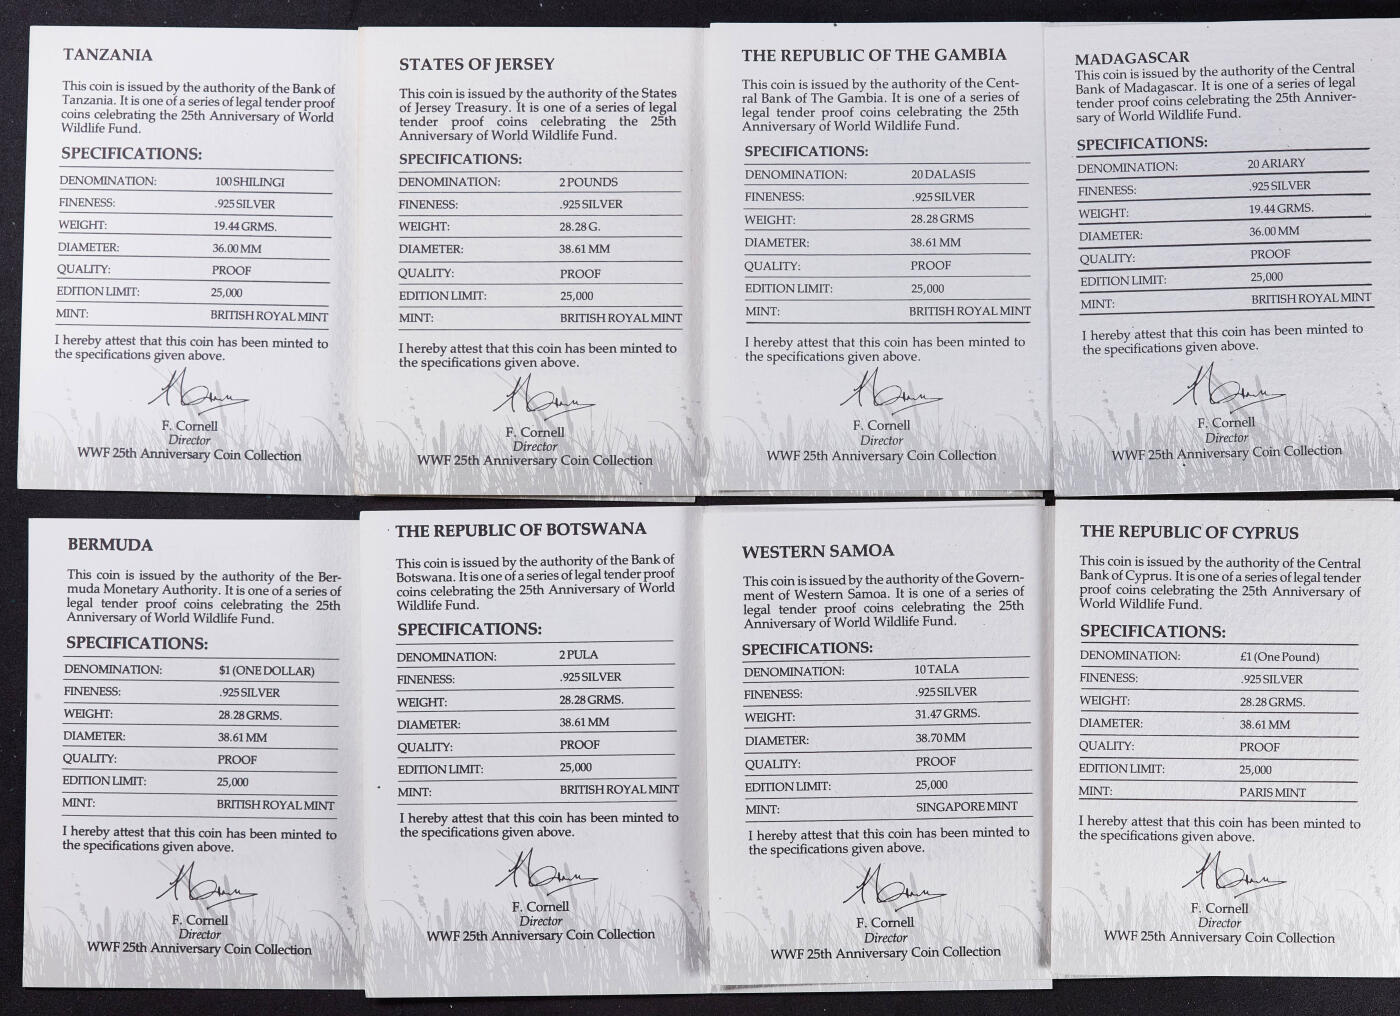 TANZANIA
This coin is issued by the authority of the Bank of
Tanzania. It is one of a series of legal tender proof
coins celebrating the 25th Anniversary of World
Wildlife Fund.
SPECIFICATIONS:
DENOMINATION: 100 SHILINGI
FINENESS: .925 SILVER
WEIGHT: 19.44 GRMS.
DIAMETER: 36.00 MM
QUALITY: PROOF
EDITION LIMIT: 25,000
MINT: BRITISH ROYAL MINT
I hereby attest that this coin has been minted to
the specifications given above.
F. Cornell
Director
WWF 25th Anniversary Coin Collection
STATES OF JERSEY
This coin is issued by the authority of the States
of Jersey Treasury. It is one of a series of legal
tender proof coins celebrating the 25th
Anniversary of World Wildlife Fund.
SPECIFICATIONS:
DENOMINATION: 2 POUNDS
FINENESS: .925 SILVER
WEIGHT: 28.28 G.
DIAMETER: 38.61 MM
QUALITY: PROOF
EDITION LIMIT: 25,000
MINT: BRITISH ROYAL MINT
I hereby attest that this coin has been minted to
the specifications given above.
F. Cornell
Director
WWF 25th Anniversary Coin Collection
THE REPUBLIC OF THE GAMBIA
This coin is issued by the authority of the Cent-
ral Bank of The Gambia. It is one of a series of
legal tender proof coins celebrating the 25th
Anniversary of World Wildlife Fund.
SPECIFICATIONS:
DENOMINATION: 20 DALASIS
FINENESS: .925 SILVER
WEIGHT: 28.28 GRMS
DIAMETER: 38.61 MM
QUALITY: PROOF
EDITION LIMIT: 25,000
MINT: BRITISH ROYAL MINT
I hereby attest that this coin has been minted to
the specifications given above.
F. Cornell
Director
WWF 25th Anniversary Coin Collection
MADAGASCAR
This coin is issued by the authority of the Central
Bank of Madagascar. It is one of a series of legal
tender proof coins celebrating the 25th Anniver-
sary of World Wildlife Fund.
SPECIFICATIONS:
DENOMINATION: 20 ARIARY
FINENESS: .925 SILVER
WEIGHT: 19.44 GRMS.
DIAMETER: 36.00 MM
QUALITY: PROOF
EDITION LIMIT: 25,000
MINT: BRITISH ROYAL MINT
I hereby attest that this coin has been minted to
the specifications given above.
F. Cornell
Director
WWF 25th Anniversary Coin Collection
BERMUDA
This coin is issued by the authority of the Ber-
muda Monetary Authority. It is one of a series of
legal tender proof coins celebrating the 25th
Anniversary of World Wildlife Fund.
SPECIFICATIONS:
DENOMINATION: $1 (ONE DOLLAR)
FINENESS: .925 SILVER
WEIGHT: 28.28 GRMS.
DIAMETER: 38.61 MM
QUALITY: PROOF
EDITION LIMIT: 25,000
MINT: BRITISH ROYAL MINT
I hereby attest that this coin has been minted to
the specifications given above.
F. Cornell
Director
WWF 25th Anniversary Coin Collection
THE REPUBLIC OF BOTSWANA
This coin is issued by the authority of the Bank of
Botswana. It is one of a series of legal tender proof
coins celebrating the 25th Anniversary of World
Wildlife Fund.
SPECIFICATIONS:
DENOMINATION: 2 PULA
FINENESS: .925 SILVER
WEIGHT: 28.28 GRMS.
DIAMETER: 38.61 MM
QUALITY: PROOF
EDITION LIMIT: 25,000
MINT: BRITISH ROYAL MINT
I hereby attest that this coin has been minted to
the specifications given above.
F. Cornell
Director
WWF 25th Anniversary Coin Collection
WESTERN SAMOA
This coin is issued by the authority of the Govern-
ment of Western Samoa. It is one of a series of
legal tender proof coins celebrating the 25th
Anniversary of World Wildlife Fund.
SPECIFICATIONS:
DENOMINATION: 10 TALA
FINENESS: .925 SILVER
WEIGHT: 31.47 GRMS.
DIAMETER: 38.70 MM
QUALITY: PROOF
EDITION LIMIT: 25,000
MINT: SINGAPORE MINT
I hereby attest that this coin has been minted to
the specifications given above.
F. Cornell
Director
WWF 25th Anniversary Coin Collection
THE REPUBLIC OF CYPRUS
This coin is issued by the authority of the Central
Bank of Cyprus. It is one of a series of legal tender
proof coins celebrating the 25th Anniversary of
World Wildlife Fund.
SPECIFICATIONS:
DENOMINATION: £1 (One Pound)
FINENESS: .925 SILVER
WEIGHT: 28.28 GRMS.
DIAMETER: 38.61 MM
QUALITY: PROOF
EDITION LIMIT: 25,000
MINT: PARIS MINT
I hereby attest that this coin has been minted to
the specifications given above.
F. Cornell
Director
WWF 25th Anniversary Coin Collection